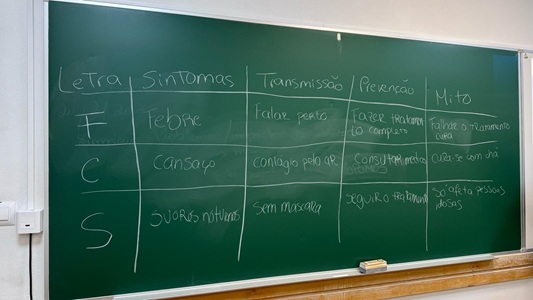 Letra Sintomas Transmissão Prevenção Mito
F Febre Falar perto Fazer tratamen
to completo Falhar o tratamento
cura
C cansaço contagio pelo ar Consultar medico cura-se com chá
S suores noturnos sem mascara seguir o tratamento Só afeta pessoas
idosas